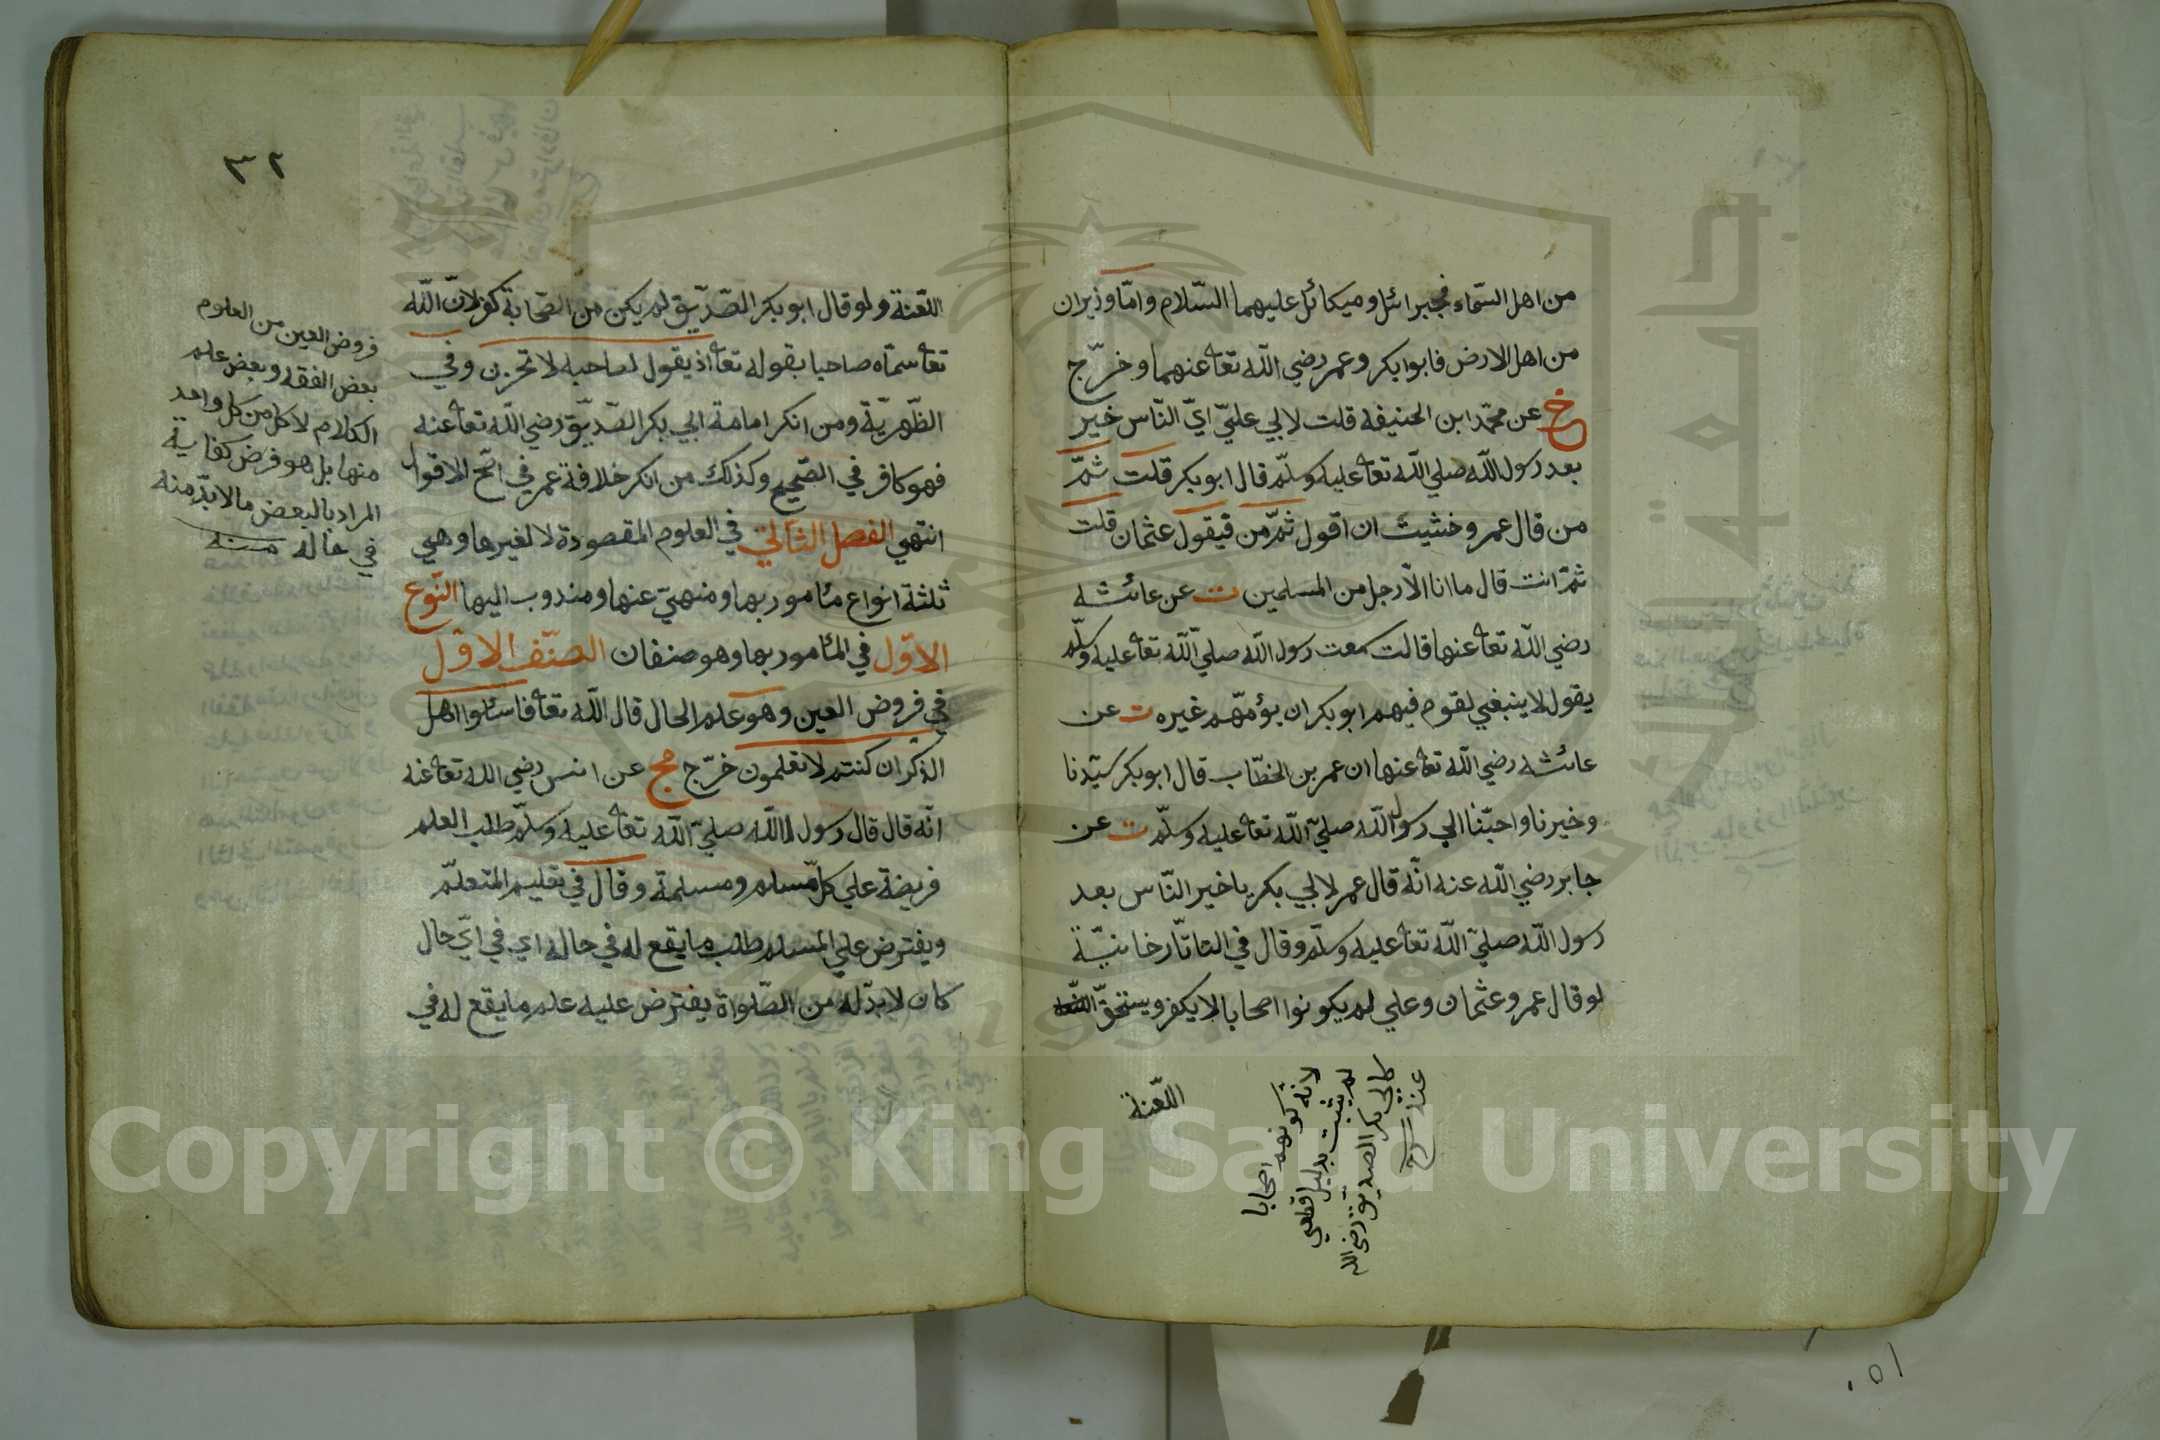 من اهل السّماء فجبرائل وميكائل عليهما السّلام وامّا وزيران
من اهل الارض فابوا بكر وعمر رضي الله تعا عنهما وخرّج
خ عن محمّد ابن الحنيفه قلت لابي عليّ ايّ النّاس خير
بعد رسول الله صلي الله تعا عليه وسلّم قال ابو بكر قلت ثمّ
من قال عمر وخشيت ان اقول ثمّ من فيقول عثمان قلت
ثمّ انت قال ما انا الّا رجل من المسلمين ت عن عائشه
رضي الله تعا عنها قالت سمعت رسول الله صلي الله تعا عليه وسلّم
يقول لا ينبغي لقوم فيهم ابو بكر ان يؤمّهم غيره ت عن
عائشه رضي الله تعا عنها ان عمر بن الخطّاب قال ابو بكر سيّدنا
وخيرنا واحبّنا الي رسول الله صلي الله تعا عليه وسلّم ت عن
جابر رضي الله عنه انّه قال عمر لابي بكر يا خير النّاس بعد
رسول الله صلي الله تعا عليه وسلّم وقال في التاتارخانيّة
لو قال عمر وعثمان وعلي لم يكونوا اصحابا لا يكفر ويستحقّ
اللّعنة
لانّه كونهم اصحابا
لم يثبت بدليل قطعي
كابي بكر الصديق رضى الله
عنه
٣٢
اللّعنة ولو قال ابو بكر الصّدّيق لم يكن من الصّحابة كفر لانّ الله
تعا سمّاه صاحبا بقوله تعا اذ يقول لصاحبه لا تحزن وفي
الظّهريّة ومن انكر امامة ابي بكر الصّديق رضي الله تعا عنه
فهو كافر في الصّحيح وكذلك من انكر خلافة عمر في اصّح الاقوال
انتهي الفصل الثّاني في العلوم المقصودة لا لغيرها وهي
ثلثة انواع مأمور بها ومنهيّ عنها ومندوب اليها النّوع
الاوّل في المأمور بها وهو صنفان الصنّف الاوّل
في فروض العين وهو علم الحال قال الله تعا فاسئلوا اهل
الذكر ان كنتم لا تعلمون خرّج مج عن انس رضي الله تعا عنه
انّه قال قال رسول الله صلي الله تعا عليه وسلّم طلب العلم
فريضة علي كلّ مسلم ومسلمة وقال في تعليم المتعلّم
ويفترض علي المسلم طلب ما يقع له في حاله اي في ايّ حال
كان لا بدّ له من الصّلواة يفترض عليه علم ما يقع له في
فروض العين من العلوم
بعض الفقه وبعض علم
الكلام لا كل من كل واحد
منها بل هو فرض كفاية
المراد بالبعض ما لا بدّ منه
في حاله منه
١٥٠
Copyright © King Saud University